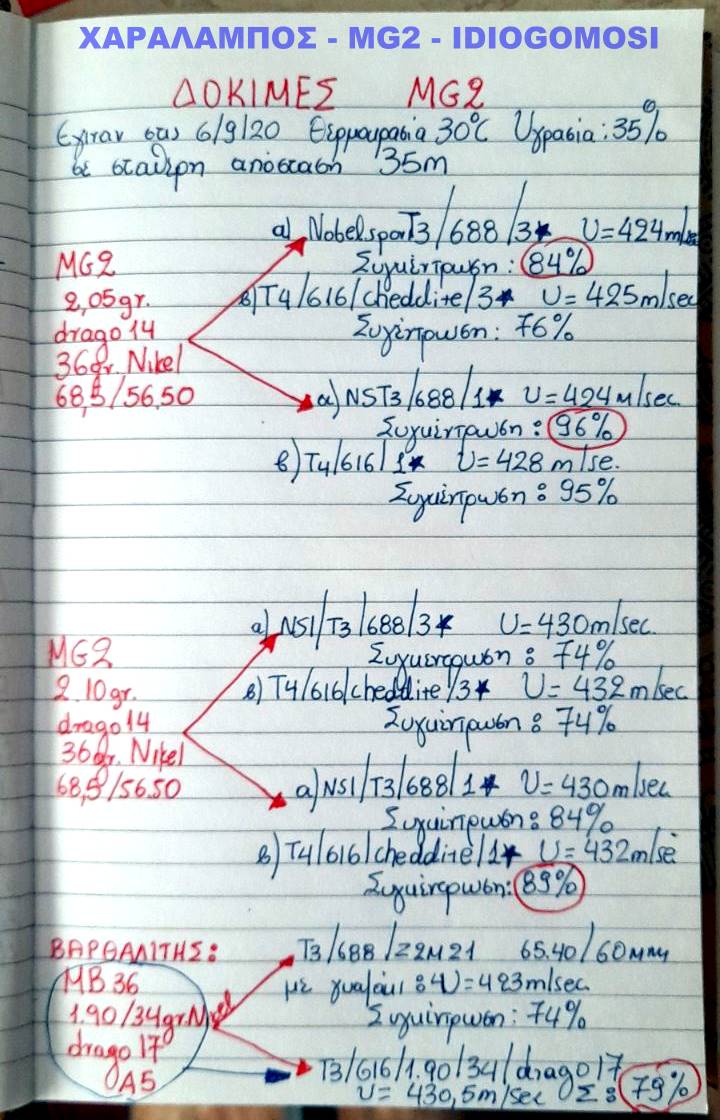 ΧΑΡΑΛΑΜΠΟΣ - MG2 - IDIOGOMOSI
ΔΟΚΙΜΕΣ MG2
Εγιναν στις 6/9/20 Θερμοκρασία 30°C Υγρασία: 35%
σε σταθερη απόσταση 35m
MG2
2,05gr.
drago 14
36gr. Nikel
68,5/56,50
a) NobelsporT3/688/3* U=424m/se
Συγκέντρωση: 84%
β) T4/616/cheddite/3* U=425m/sec
Συγέντρωση: 76%
a) NST3/688/1* U=424m/sec.
Συγκέντρωση: 96%
β) T4/616/1* U=428 m/se.
Συγκέντρωση: 95%
MG2
2.10gr.
drago 14
36gr. Nikel
68,5/56.50
a) NSI/T3/688/3* U=430m/sec.
Συγκεντρωση: 74%
β) T4/616/cheddite/3* U=432m/sec
Συγκέντρωση: 74%
a) NSI/T3/688/1* U=430m/sec
Συγκέντρωση: 84%
β) T4/616/cheddite/1* U=432m/sè
Συγκέντρωση: 89%
ΒΑΡΘΑΛΙΤΗΣ:
MB 36
1.90/34gr.Nikel
drago 17
A5
T3/688/Z2M21 65.40/60mm
με γυαλάκι: U=423m/sec
Συγκέντρωση: 74%
T3/616/1.90/34/drago 17
U= 430,5m/sec Σ: 79%